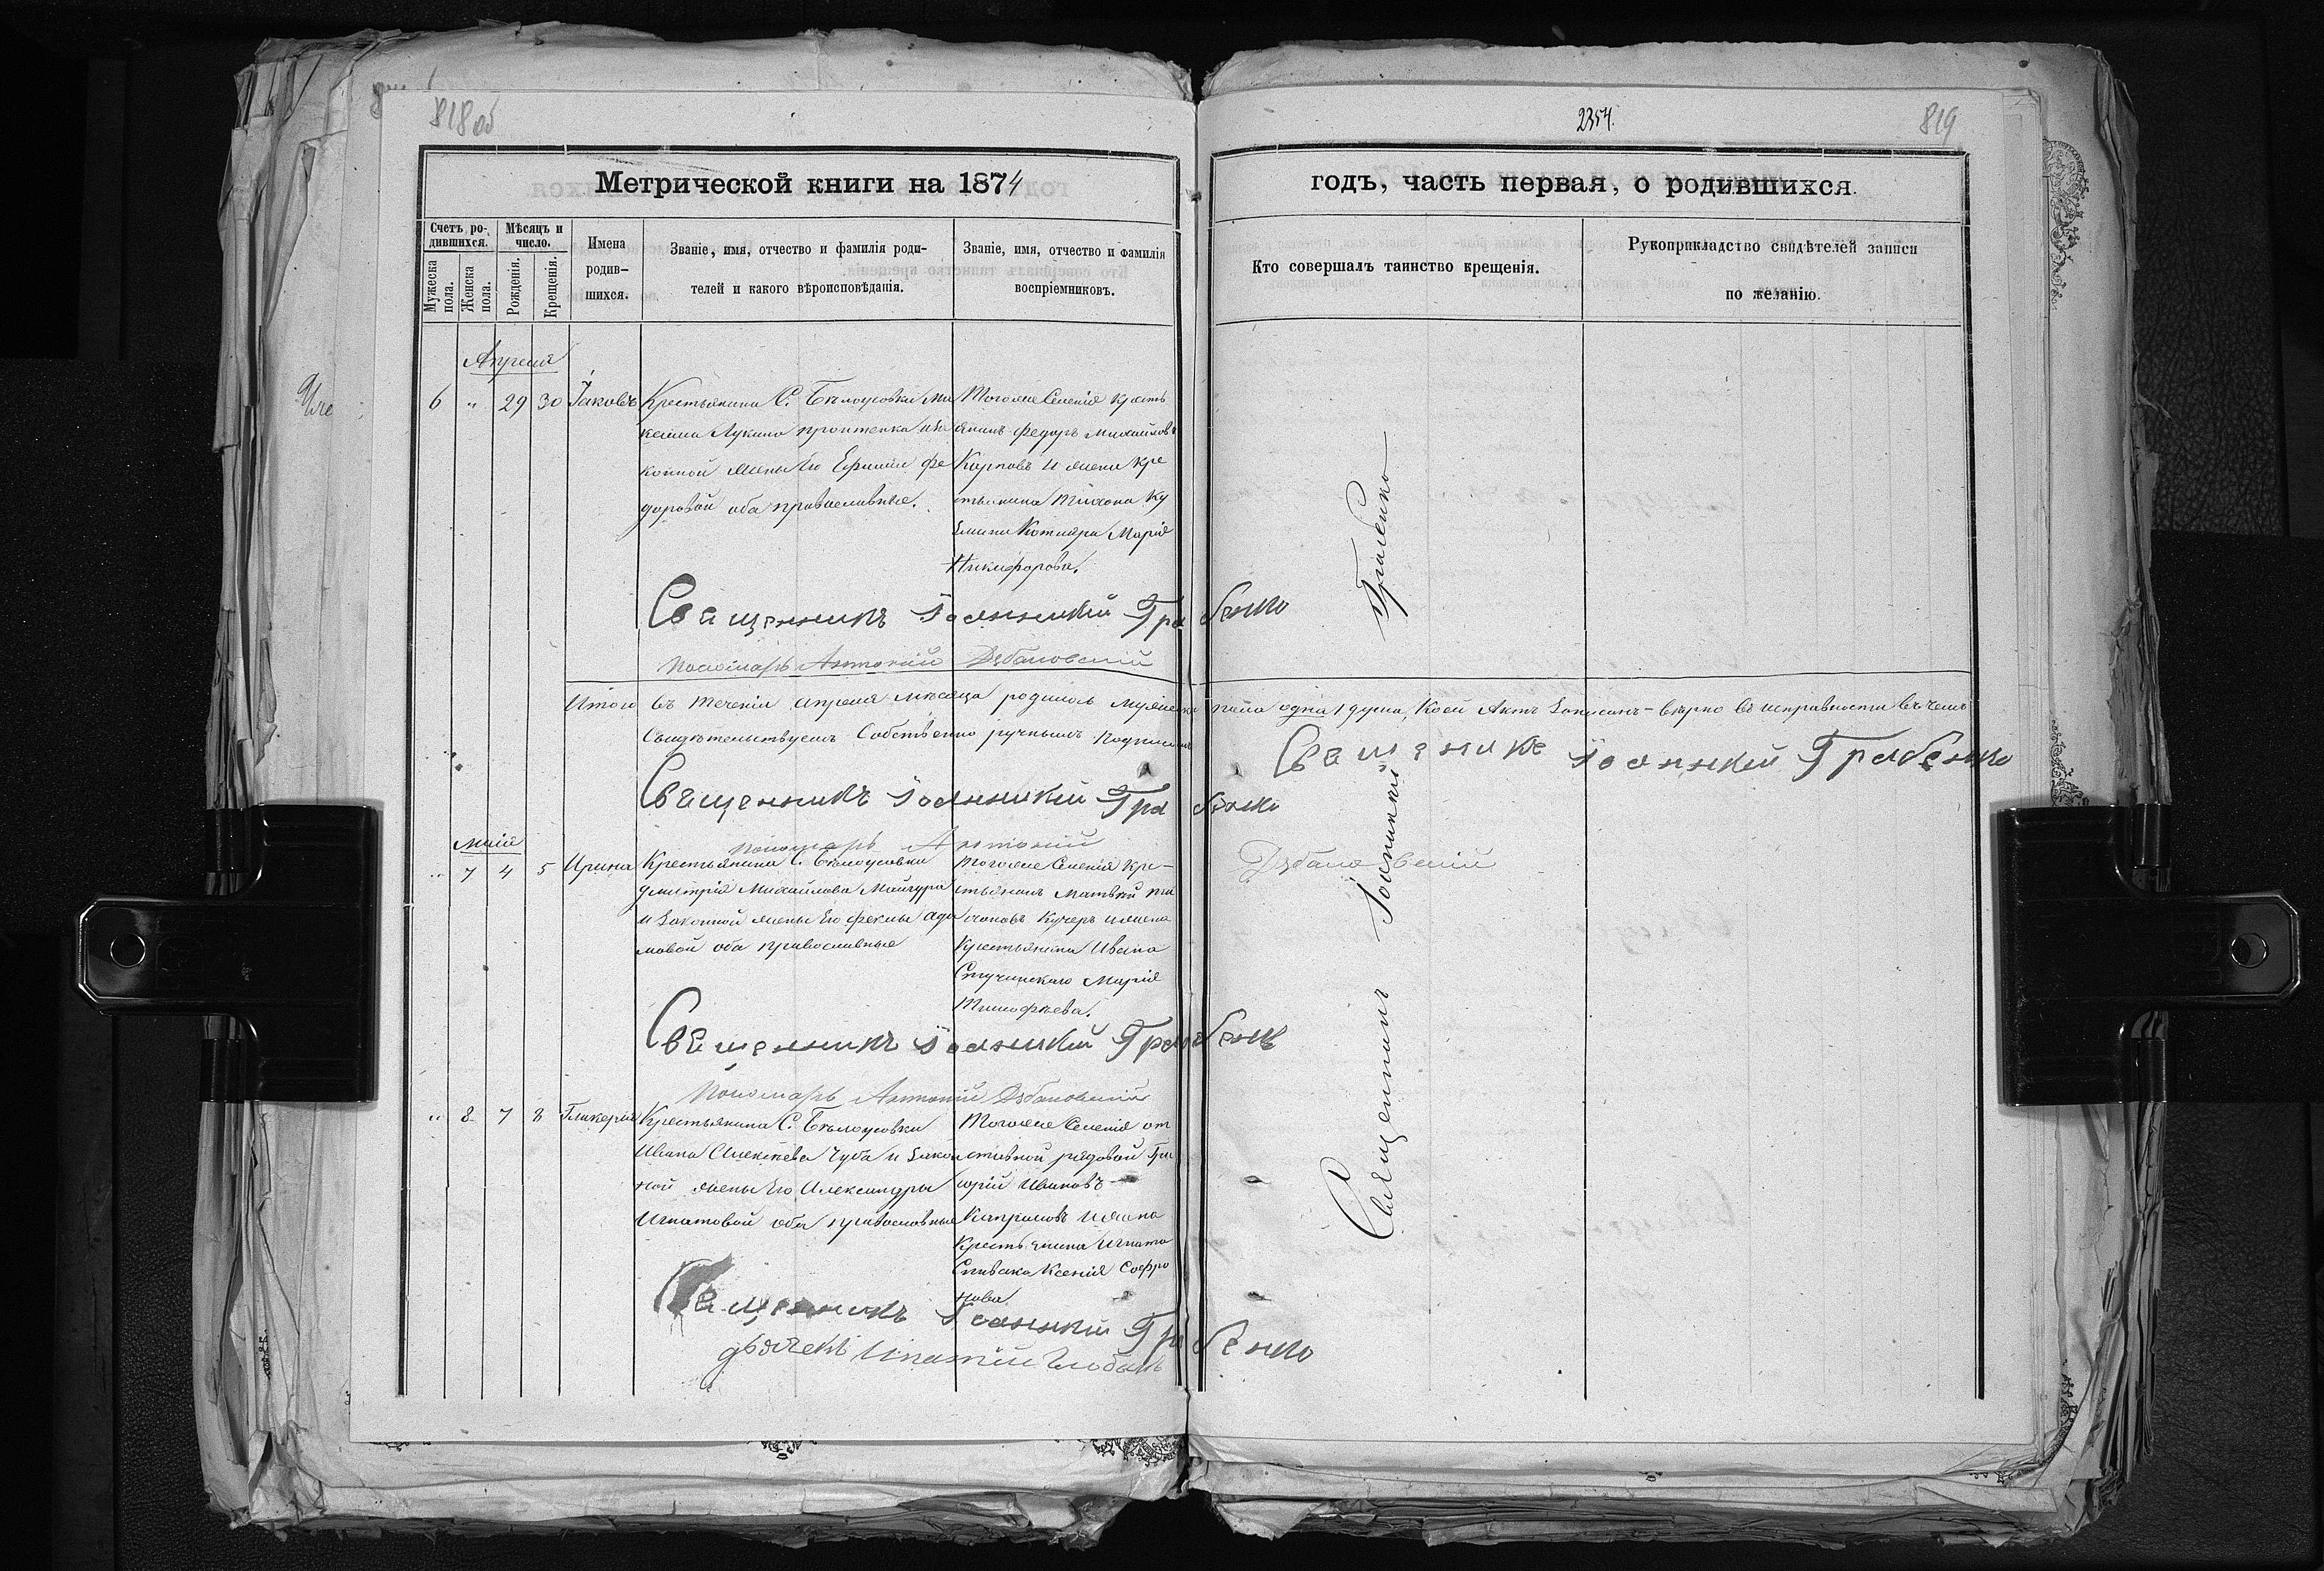 818об
2354.
819
Метрической книги на 1874
годъ, часть первая, о родившихся.
Счетъ родившихся.
Мужеска пола.
Женска пола.
Мѣсяцъ и число.
Рожденія.
Крещенія.
Имена родив-
шихся.
Званіе, имя, отчество и фамилія роди-
телей и какого вѣроисповѣданія.
Званіе, имя, отчество и фамилія
воспріемниковъ.
Кто совершалъ таинство крещенія.
Рукоприкладство свидѣтелей записи
по желанію.
Апреля
6 " 29 30 Іаковъ
Крестьянина С. Бѣлоусовки
Лукина за
конной жены Его Ефиміи Фе
доровой оба православные.
Тогоже Селенія кресть
янинъ Федоръ Михайловъ
Карповъ и жена кре
стьянина Тихона Ку
змина Котляра Марія
Никифорова.
Священникъ Іоанникій Грабенко
Пономарь Антоній Дзбановскій
Итого въ теченіи Апреля мѣсяца родилось мужеска пола одна 1 душа, коей Актъ Записанъ вѣрно въ исправности въ чемъ
Свидѣтельствуемъ Собственно ручнымъ подписомъ
Священникъ Іоанникій Грабенко
Священникъ Іоанникій Грабенко
Пономарь Антоній Дзбановскій
Маія
" 7 4 5 Ирина
Крестьянина С. Бѣлоусовки
Дмитрія Михайлова
и Законной жены Его Феклы Ада
мовой оба православные
Тогоже Селенія Кре-
стьянинъ Матвѣй
Кучеръ и жена
Крестьянина Ивана
Марія
Тимофѣева.
Священникъ Іоанникій Грабенко
Пономарь Антоній Дзбановскій
" 8 7 8 Гликерія
Крестьянина С. Бѣлоусовки
Ивана Алексѣева Чуба и Закон
ной жены Его Александры
Игнатовой оба православные
Тогоже Селенія от
ставной рядовой Гри
горій Ивановъ
и жена
Крестьянина Игната
Спивака Ксенія Софро
нова
Священникъ Іоанникій Грабенко
Дьячекъ Игнатій
Священникъ Іоанникій Грабенко